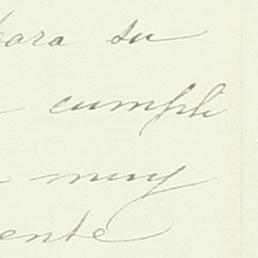 para su
cumpli
muy
ente